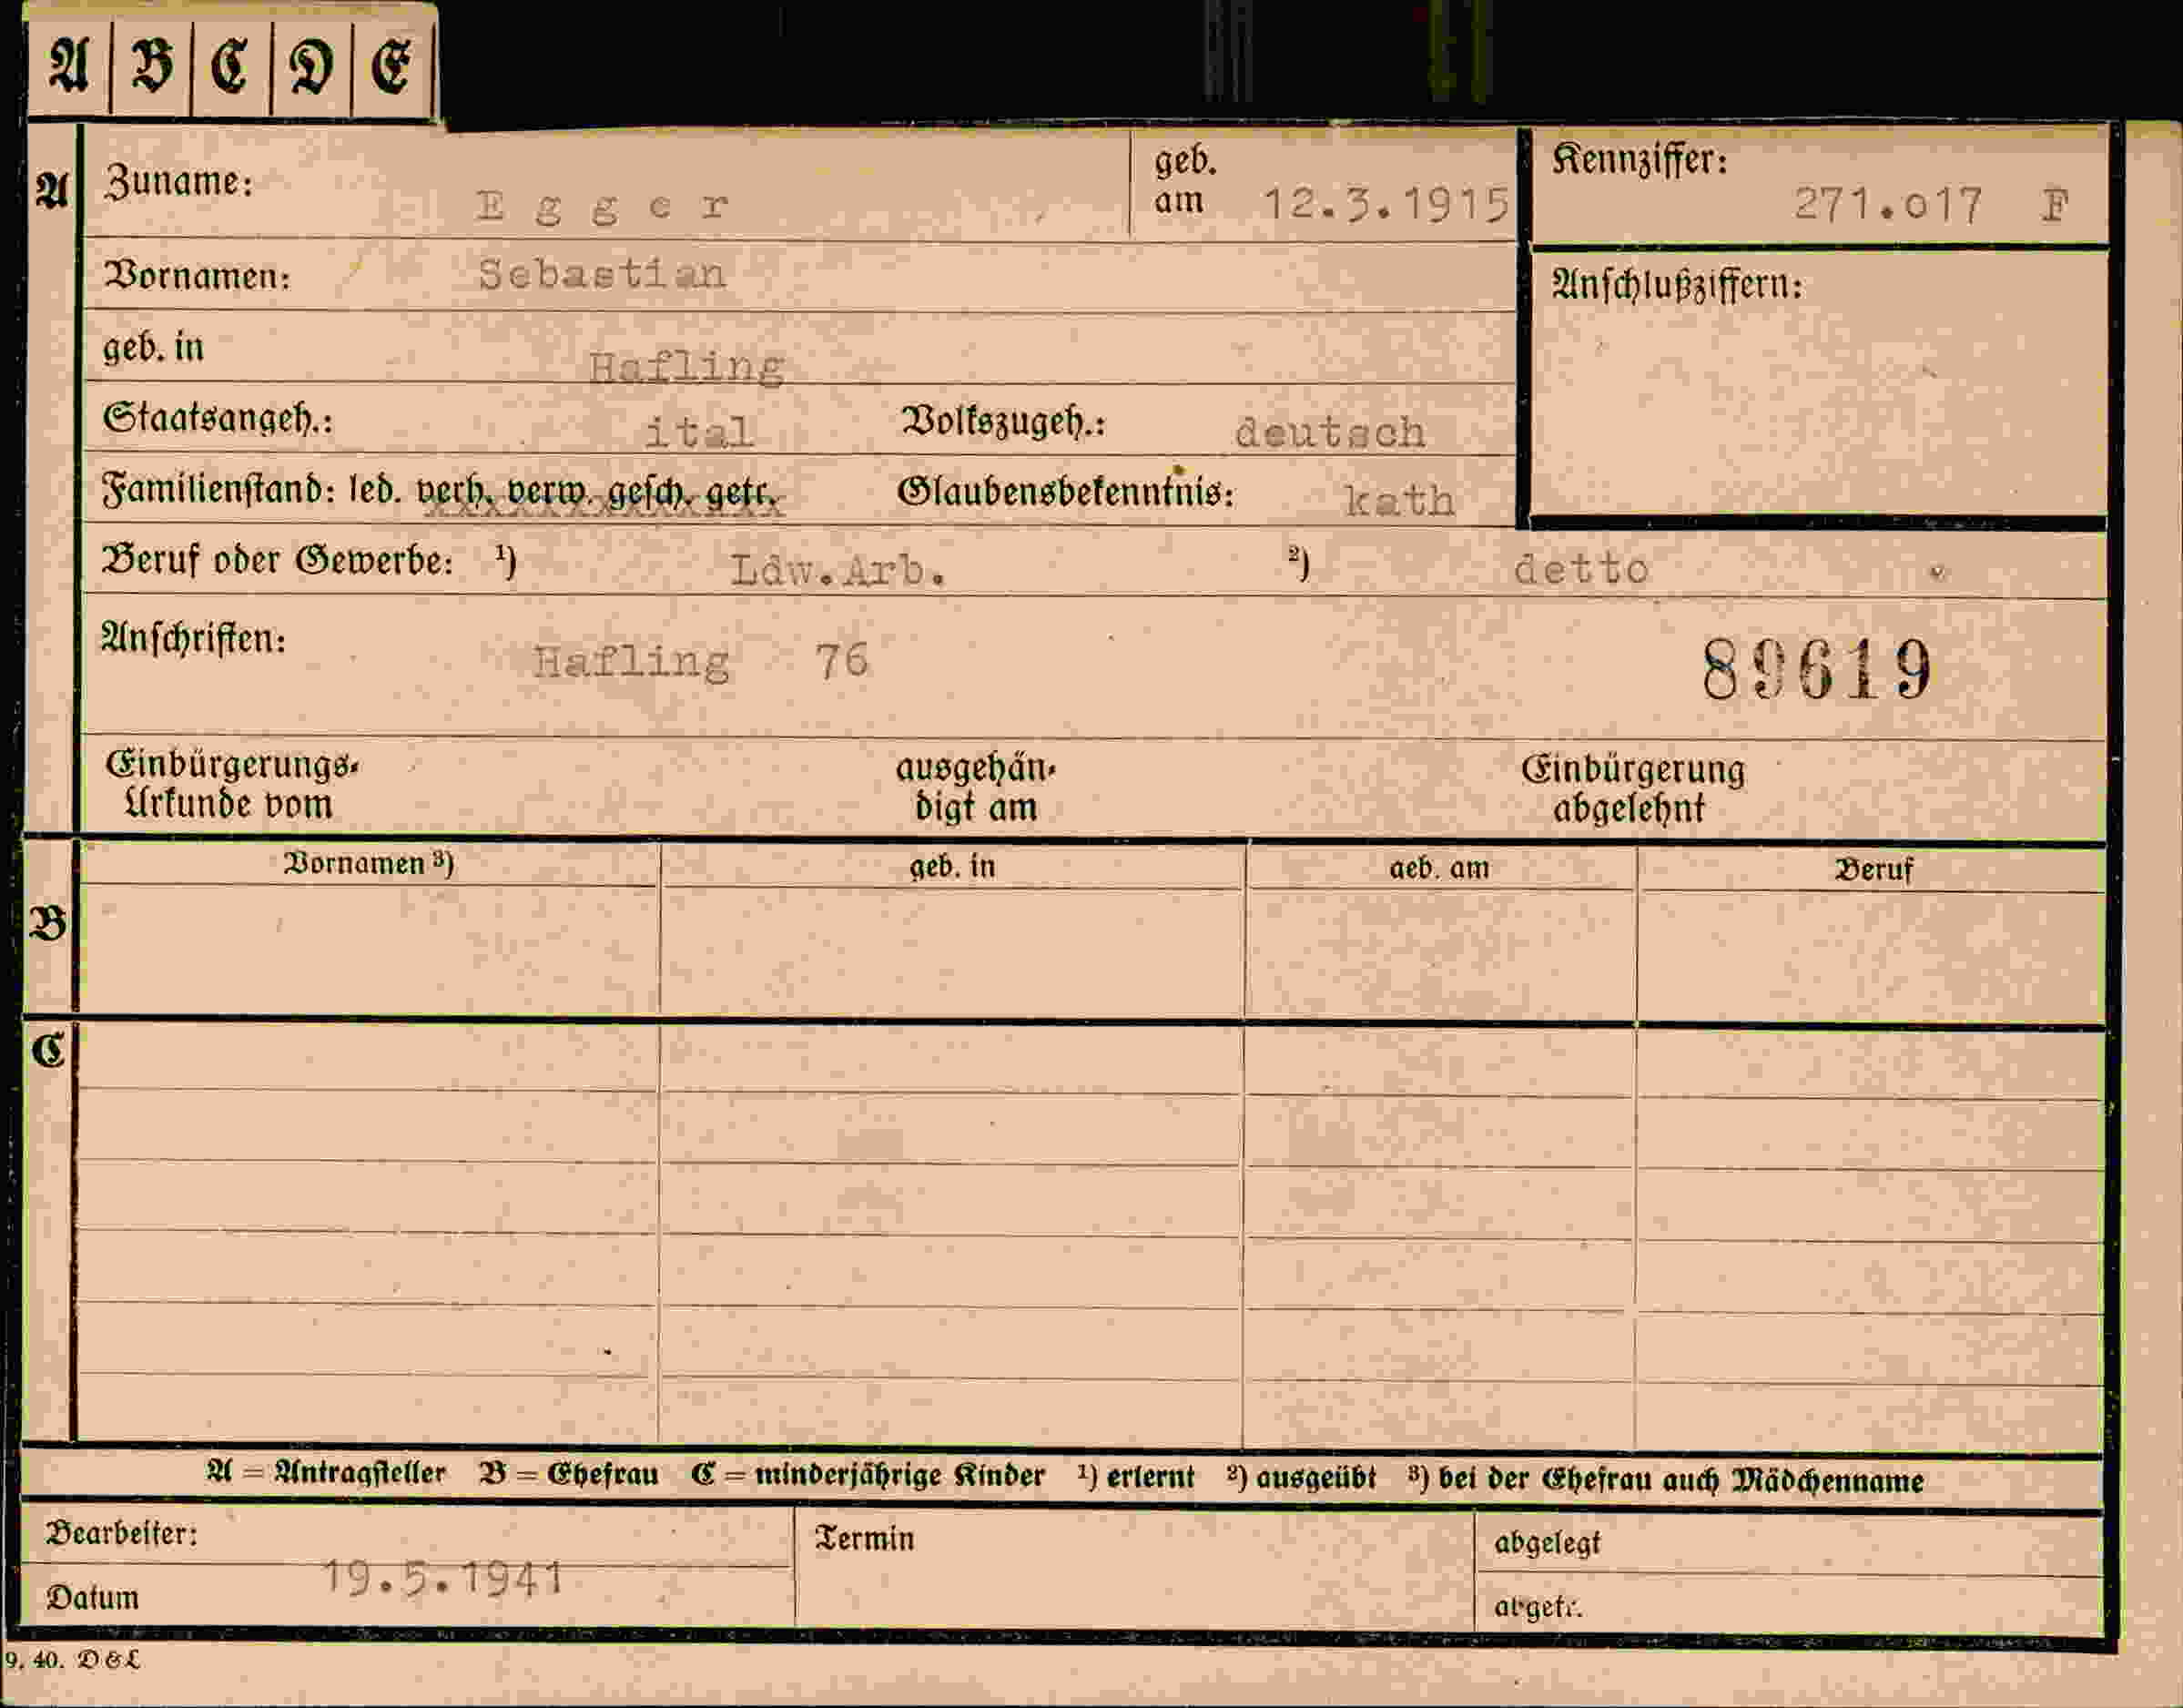 A B C D E
A Zuname: Egger geb. am 12.3.1915 Kennziffer: 271.017 F
Vornamen: Sebastian Anschlußziffern:
geb. in Hafling
Staatsangeh.: ital Volkszugeh.: deutsch
Familienstand: led. verh. verw. gesch. getr. Glaubensbekenntnis: kath
Beruf oder Gewerbe: ¹) Ldw.Arb. ²) detto
Anschriften: Hafling 76 89619
Einbürgerungs- ausgehän- Einbürgerung
Urkunde vom digt am abgelehnt
Vornamen ³) geb. in geb. am Beruf
B
C
A = Antragsteller B = Ehefrau C = minderjährige Kinder ¹) erlernt ²) ausgeübt ³) bei der Ehefrau auch Mädchenname
Bearbeiter: Termin abgelegt
Datum 19.5.1941 abgetr.
9. 40. D&L